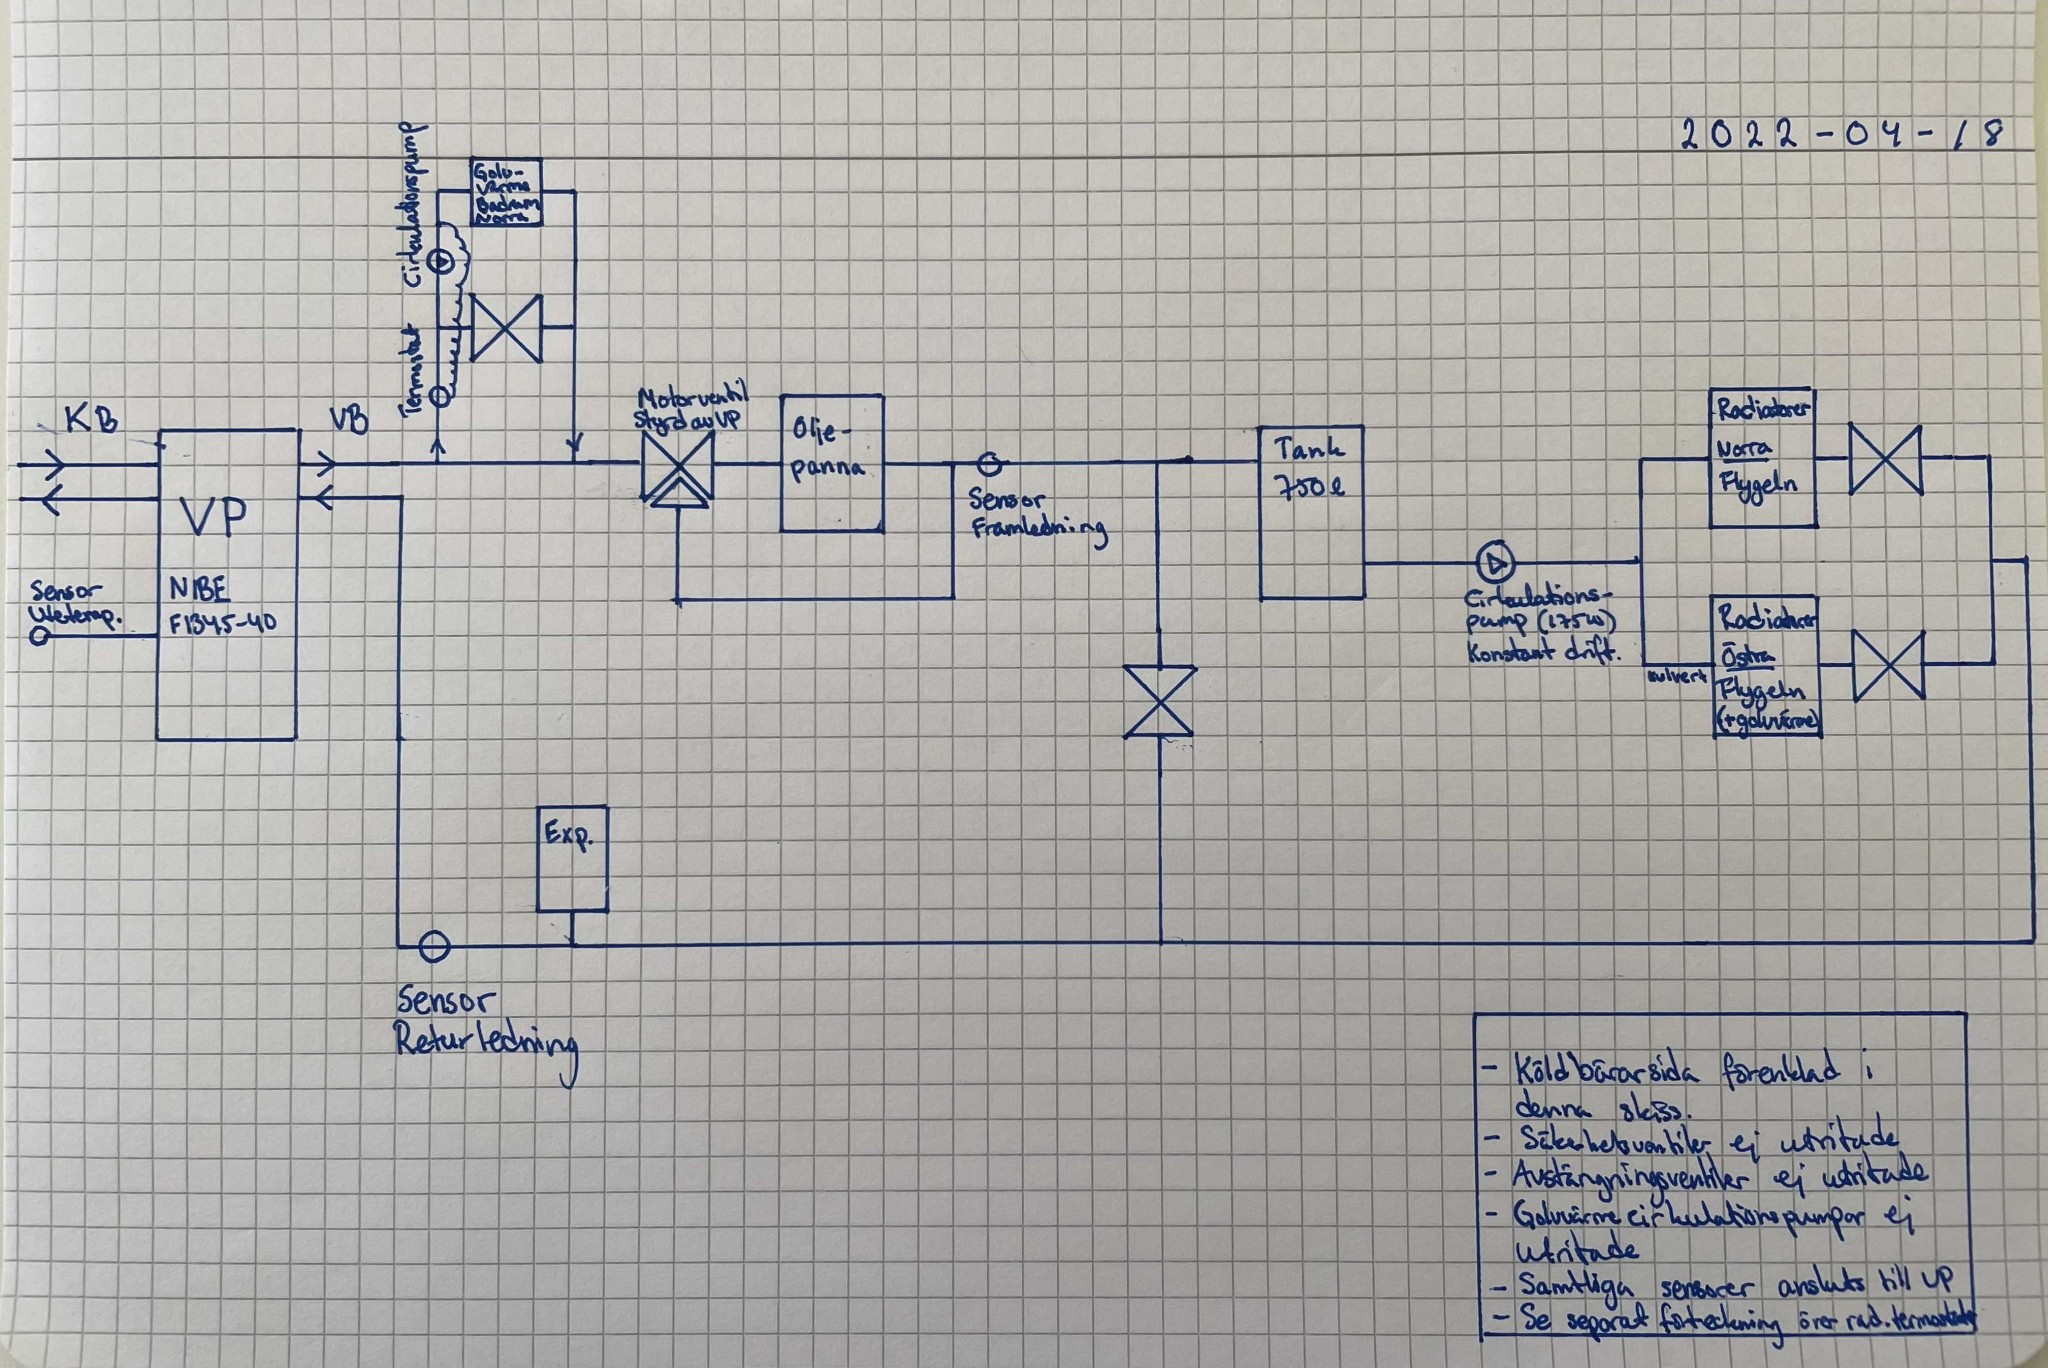 2022-04-18
Cirkulationspump
Termostat
Golv-
värme
Badrum
Norra
KB
VB
VP
NIBE
F1345-40
Sensor
Utetemp.
Motorventil
Styrd av VP
Olje-
panna
Sensor
Framledning
Tank
750 l
Cirkulations-
pump (175W)
Konstant drift.
Radiatorer
Norra
Flygeln
kulvert
Radiatorer
Östra
Flygeln
(+golvvärme)
Exp.
Sensor
Returledning
- Köldbärarsida förenklad i
denna skiss.
- Säkerhetsventiler ej utritade
- Avstängningsventiler ej utritade
- Golvvärmecirkulationspumpar ej
utritade
- Samtliga sensorer ansluts till VP
- Se separat förteckning över rad.termostater